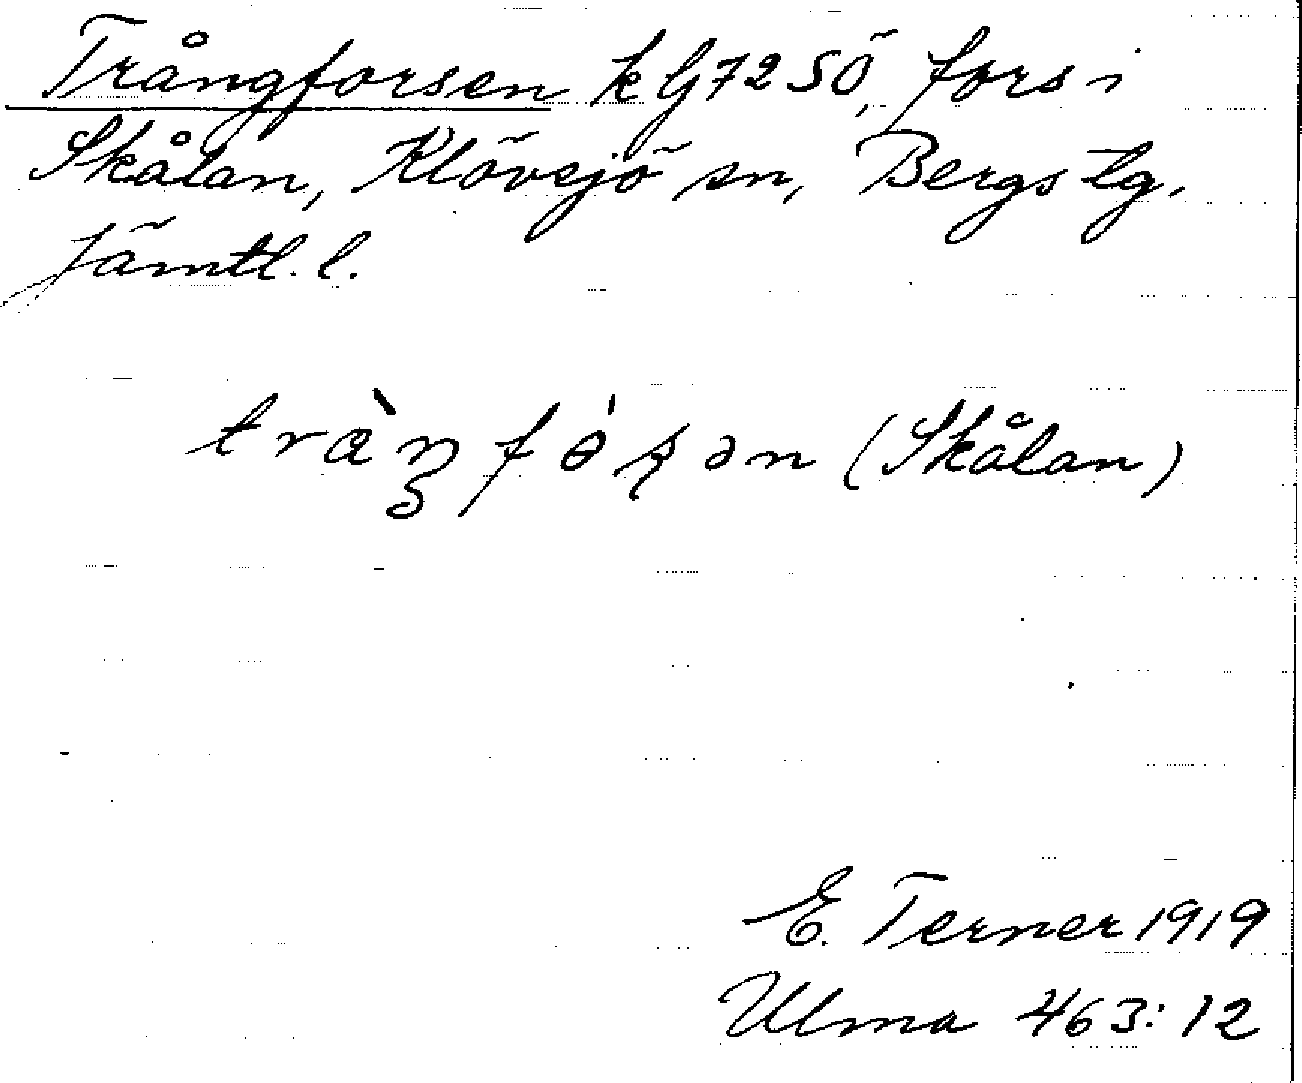 Trångforsen k G 72 SÖ, fors i
Skålan, Klövsjö sn, Bergs tg.
Jämtl. l.
(Skålan)
E. Terner 1919
Ulma 463:12